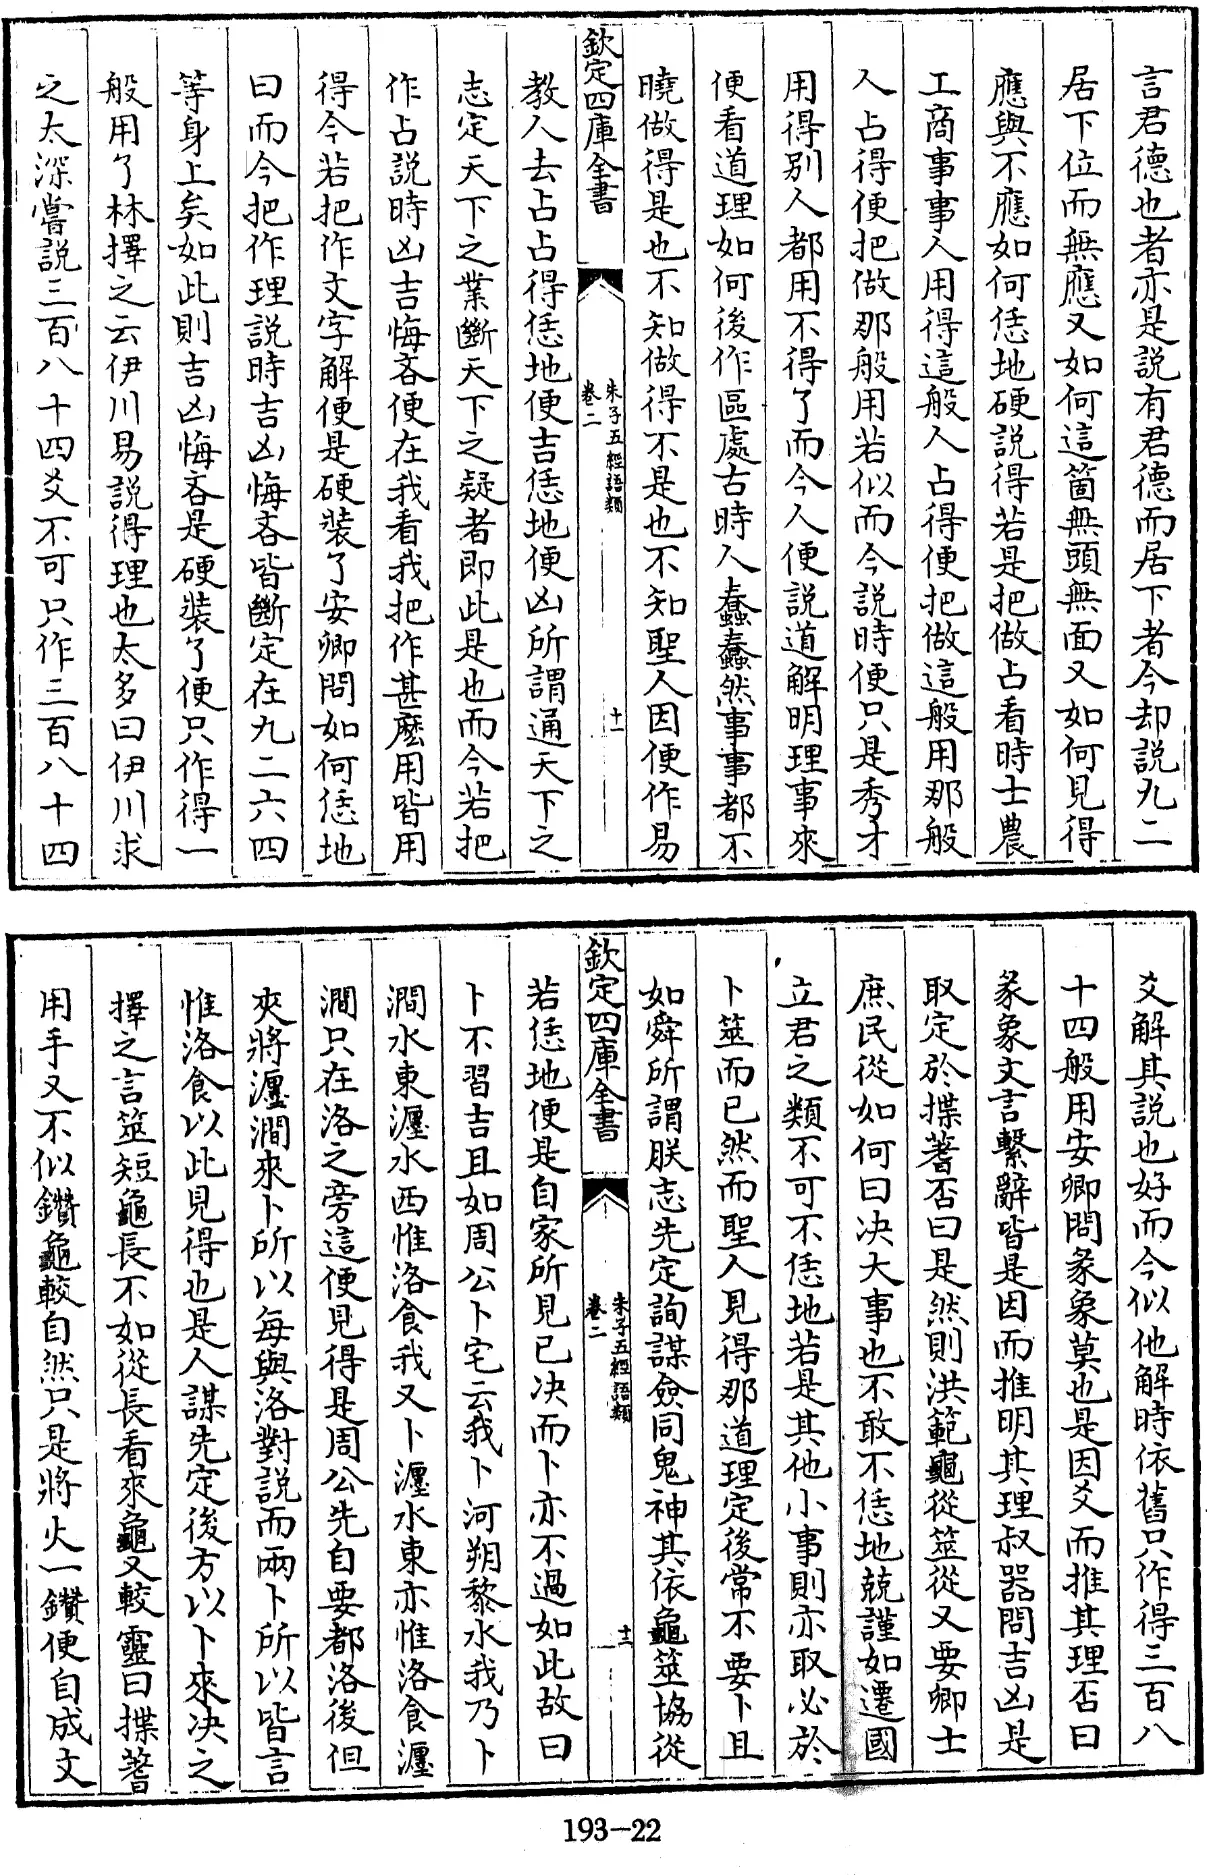 言君德也者亦是説有君德而居下者今却説九二
居下位而無應又如何這箇無頭無面又如何見得
應與不應如何恁地硬説得若是把做占看時士農
工商事事人用得這般人占得便把做這般用那般
人占得便把做那般用若似而今説時便只是秀才
用得别人都用不得了而今人便説道解明理事來
便看道理如何後作區處古時人蠢蠢然事事都不
曉做得是也不知做得不是也不知聖人因便作易
欽定四庫全書
朱子五經語類
卷二
十一
教人去占占得恁地便吉恁地便凶所謂通天下之
志定天下之業斷天下之疑者即此是也而今若把
作占説時凶吉悔吝便在我看我把作甚麽用皆用
得今若把作文字解便是硬装了安卿問如何恁地
曰而今把作理説時吉凶悔吝皆斷定在九二六四
等身上矣如此則吉凶悔吝是硬装了便只作得一
般用了林擇之云伊川易説得理也太多曰伊川求
之太深嘗説三百八十四爻不可只作三百八十四
爻解其説也好而今似他解時依舊只作得三百八
十四般用安卿問彖象莫也是因爻而推其理否曰
彖象文言繫辭皆是因而推明其理叔器問吉凶是
取定於揲蓍否曰是然則洪範龜從筮從又要卿士
庶民從如何曰决大事也不敢不恁地兢謹如遷國
立君之類不可不恁地若是其他小事則亦取必於
卜筮而已然而聖人見得那道理定後常不要卜且
如舜所謂朕志先定詢謀僉同鬼神其依龜筮協從
欽定四庫全書
朱子五經語類
卷二
十二
若恁地便是自家所見已决而卜亦不過如此故曰
卜不習吉且如周公卜宅云我卜河朔黎水我乃卜
澗水東瀍水西惟洛食我又卜瀍水東亦惟洛食瀍
澗只在洛之旁這便見得是周公先自要都洛後但
夾將瀍澗來卜所以每與洛對説而兩卜所以皆言
惟洛食以此見得也是人謀先定後方以卜來决之
擇之言筮短龜長不如從長看來龜又較靈曰揲蓍
用手又不似鑽龜較自然只是將火一鑽便自成文
193-22